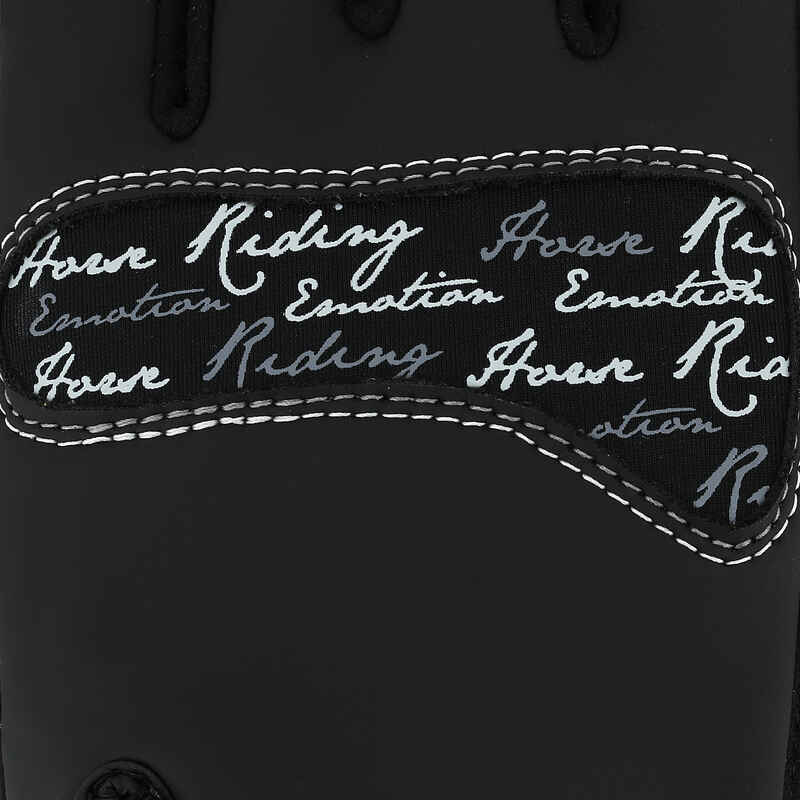 Horse Riding Horse Ri
Emotion Emotion Emotion
Horse Riding Horse Rid
otion
Ri